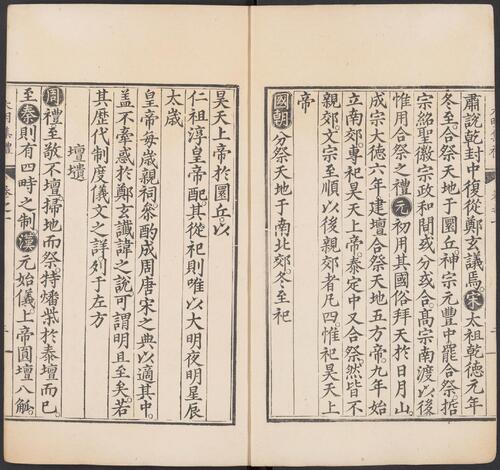 肅說乾封中復從鄭玄議焉宋太祖乾德元年
冬至合祭天地于圜丘神宗元豐中罷合祭哲
宗紹聖徽宗政和間或分或合高宗南渡以後
惟用合祭之禮元初用其國俗拜天於日月山
成宗大德六年建壇合祭天地五方帝九年始
立南郊專祀昊天上帝泰定中又合祭然皆不
親郊文宗至順以後親郊者凡四惟祀昊天上
帝
國朝分祭天地于南北郊冬至祀
昊天上帝於圜丘以
仁祖淳皇帝配其從祀則唯以大明夜明星辰
太歲
皇帝每歲親祠參酌成周唐宋之典以適其中
蓋不牽惑於鄭玄讖諱之說可謂明且至矣若
其歷代制度儀文之詳列于左方
壇壝
周禮至敬不壇掃地而祭特燔柴於泰壇而已
至秦則有四時之制漢元始儀上帝圓壇八觚